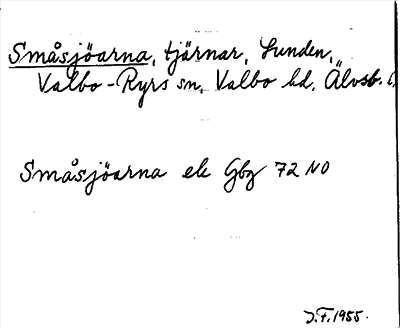 Småsjöarna, tjärnar, Lunden,
Valbo-Ryrs sn, Valbo hd, Älvsb. l.
Småsjöarna ek Gbg 72 NO
J.F. 1955.